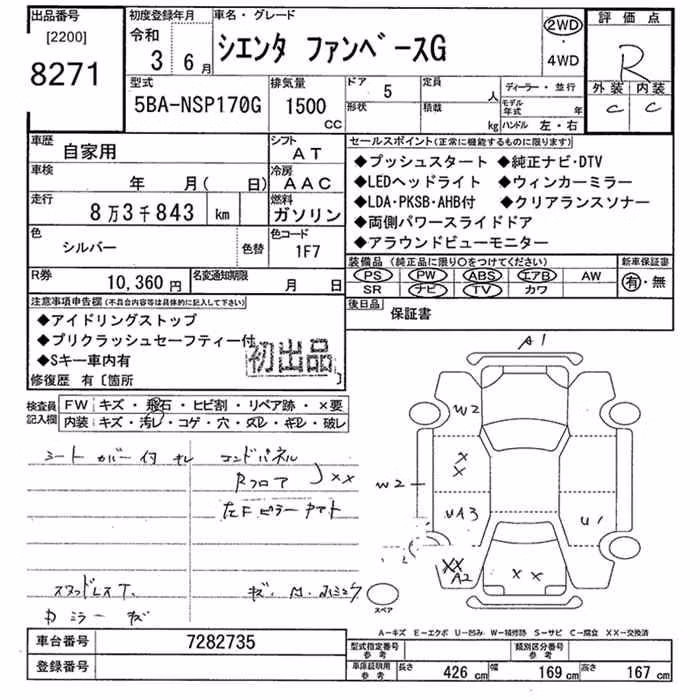 出品番号
[2200]
8271
初度登録年月
令和
3 6月
車名・グレード
シエンタ ファンベースG
2WD
・
4WD
評価点
R
外装 内装
C C
型式
5BA-NSP170G
排気量
1500
CC
ドア 5
形状
定員 人
積載 kg
ディーラー・並行
モデル年式 年
ハンドル 左・右
車歴
自家用
シフト
AT
車検
年 月( 日)
冷房
AAC
走行
8万3千843 km
燃料
ガソリン
色
シルバー
色替
色コード
1F7
R券
10,360円
名変通知期限
月 日
セールスポイント(正常に機能するものに限ります)
◆プッシュスタート ◆純正ナビ・DTV
◆LEDヘッドライト ◆ウィンカーミラー
◆LDA・PKSB・AHB付 ◆クリアランスソナー
◆両側パワースライドドア
◆アラウンドビューモニター
装備品(純正品に限り○をつけてください)
PS PW ABS エアB AW
SR ナビ TV カワ
新車保証書
有・無
後日品
保証書
注意事項申告欄(不具合内容等は具体的に記入して下さい)
◆アイドリングストップ
◆プリクラッシュセーフティー付
◆Sキー車内有
初出品
修復歴 有〔箇所 〕
検査員
記入欄
FW キズ・飛石・ヒビ割・リペア跡・×要
内装 キズ・汚レ・コゲ・穴・スレ・キレ・破レ
シートカバー付 キレ
コンドパネル
Rフロア
××
左Fピラー
スタッドレスT.
Rミラー キズ
A1
W2
×
×
W2
UA3
U1
××
A2
××
スペア
A―キズ E―エクボ U―凹み W―補修跡 S―サビ C―腐食 XX―交換済
車台番号
7282735
登録番号
型式指定番号
参考
類別区分番号
参考
車庫証明用
参考
長さ 426 cm 幅 169 cm 高さ 167 cm